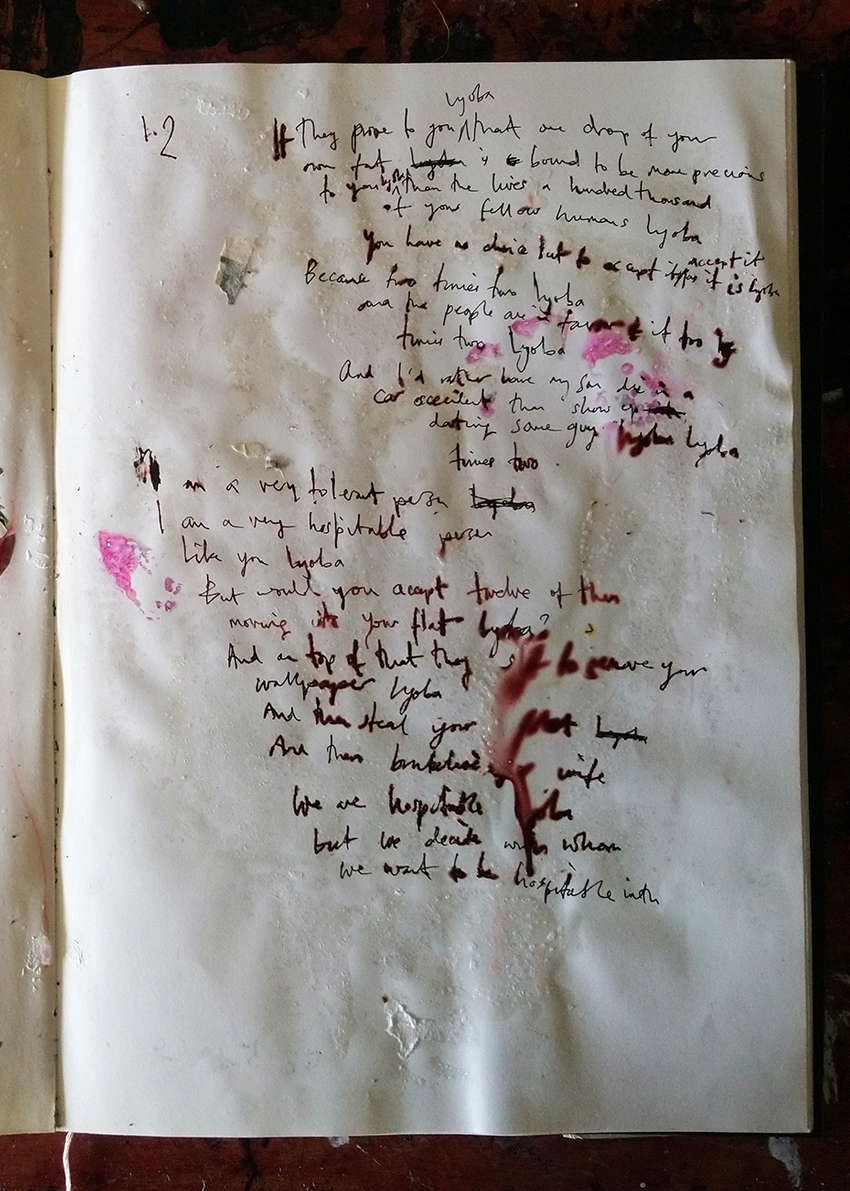 lyoba
1.2 If they prove to you that one drop of your
own fat lyoba is bound to be more precious
to you lyoba than the lives a hundred thousand
of your fellow humans lyoba
accept it
You have no choice but to accept it for it is lyoba
Because two times two lyoba
and the people are in favor of it too ly
times two lyoba
And I'd rather have my son die in a
car accident than show up
dating some guy lyoba lyoba
times two .
I am a very tolerant person lyoba
I am a very hospitable person
Like you lyoba
But would you accept twelve of them
moving into your flat lyoba?
And on top of that they to remove your
wallpaper lyoba
And then steal your lyoba
And then wife
We are hospitable lyoba
but we decide with whom
we want to be hospitable with